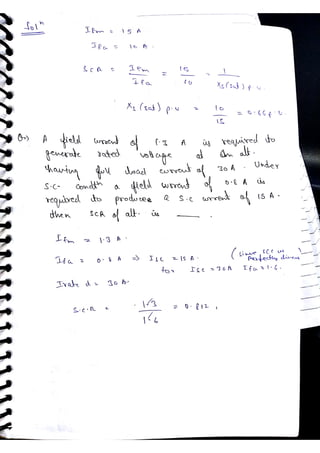 Solⁿ
Ifm = 15 A
Ifa = 10 A.
SCR = Ifm / Ifa = 15 / 10 = 1 / Xs(sat) p.u.
Xs(sat) p.u = 10 / 15 = 0.66 p.u.
Q→) A field current of 1.3 A is required to
generate rated voltage at an alt.
having full load current of 30 A. Under
S.C. condⁿ a field current of 0.8 A is
required to produces a S.C current of 15 A.
then SCR of alt. is ____.
Ifm = 1.3 A.
Ifa = 0.8 A ⇒ Isc = 15 A. (since SCC is perfectly linear
for Isc = 30A Ifa = 1.6.
Irated = 30 A.
S.C.R = 1.3 / 1.6 = 0.812,